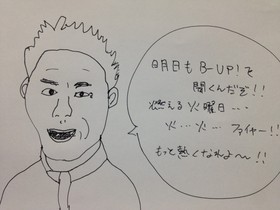 明日も B-UP! を
聞くんだぞ!!
燃える火曜日…
火…火…ファイヤー!!
もっと熱くなれよ〜!!